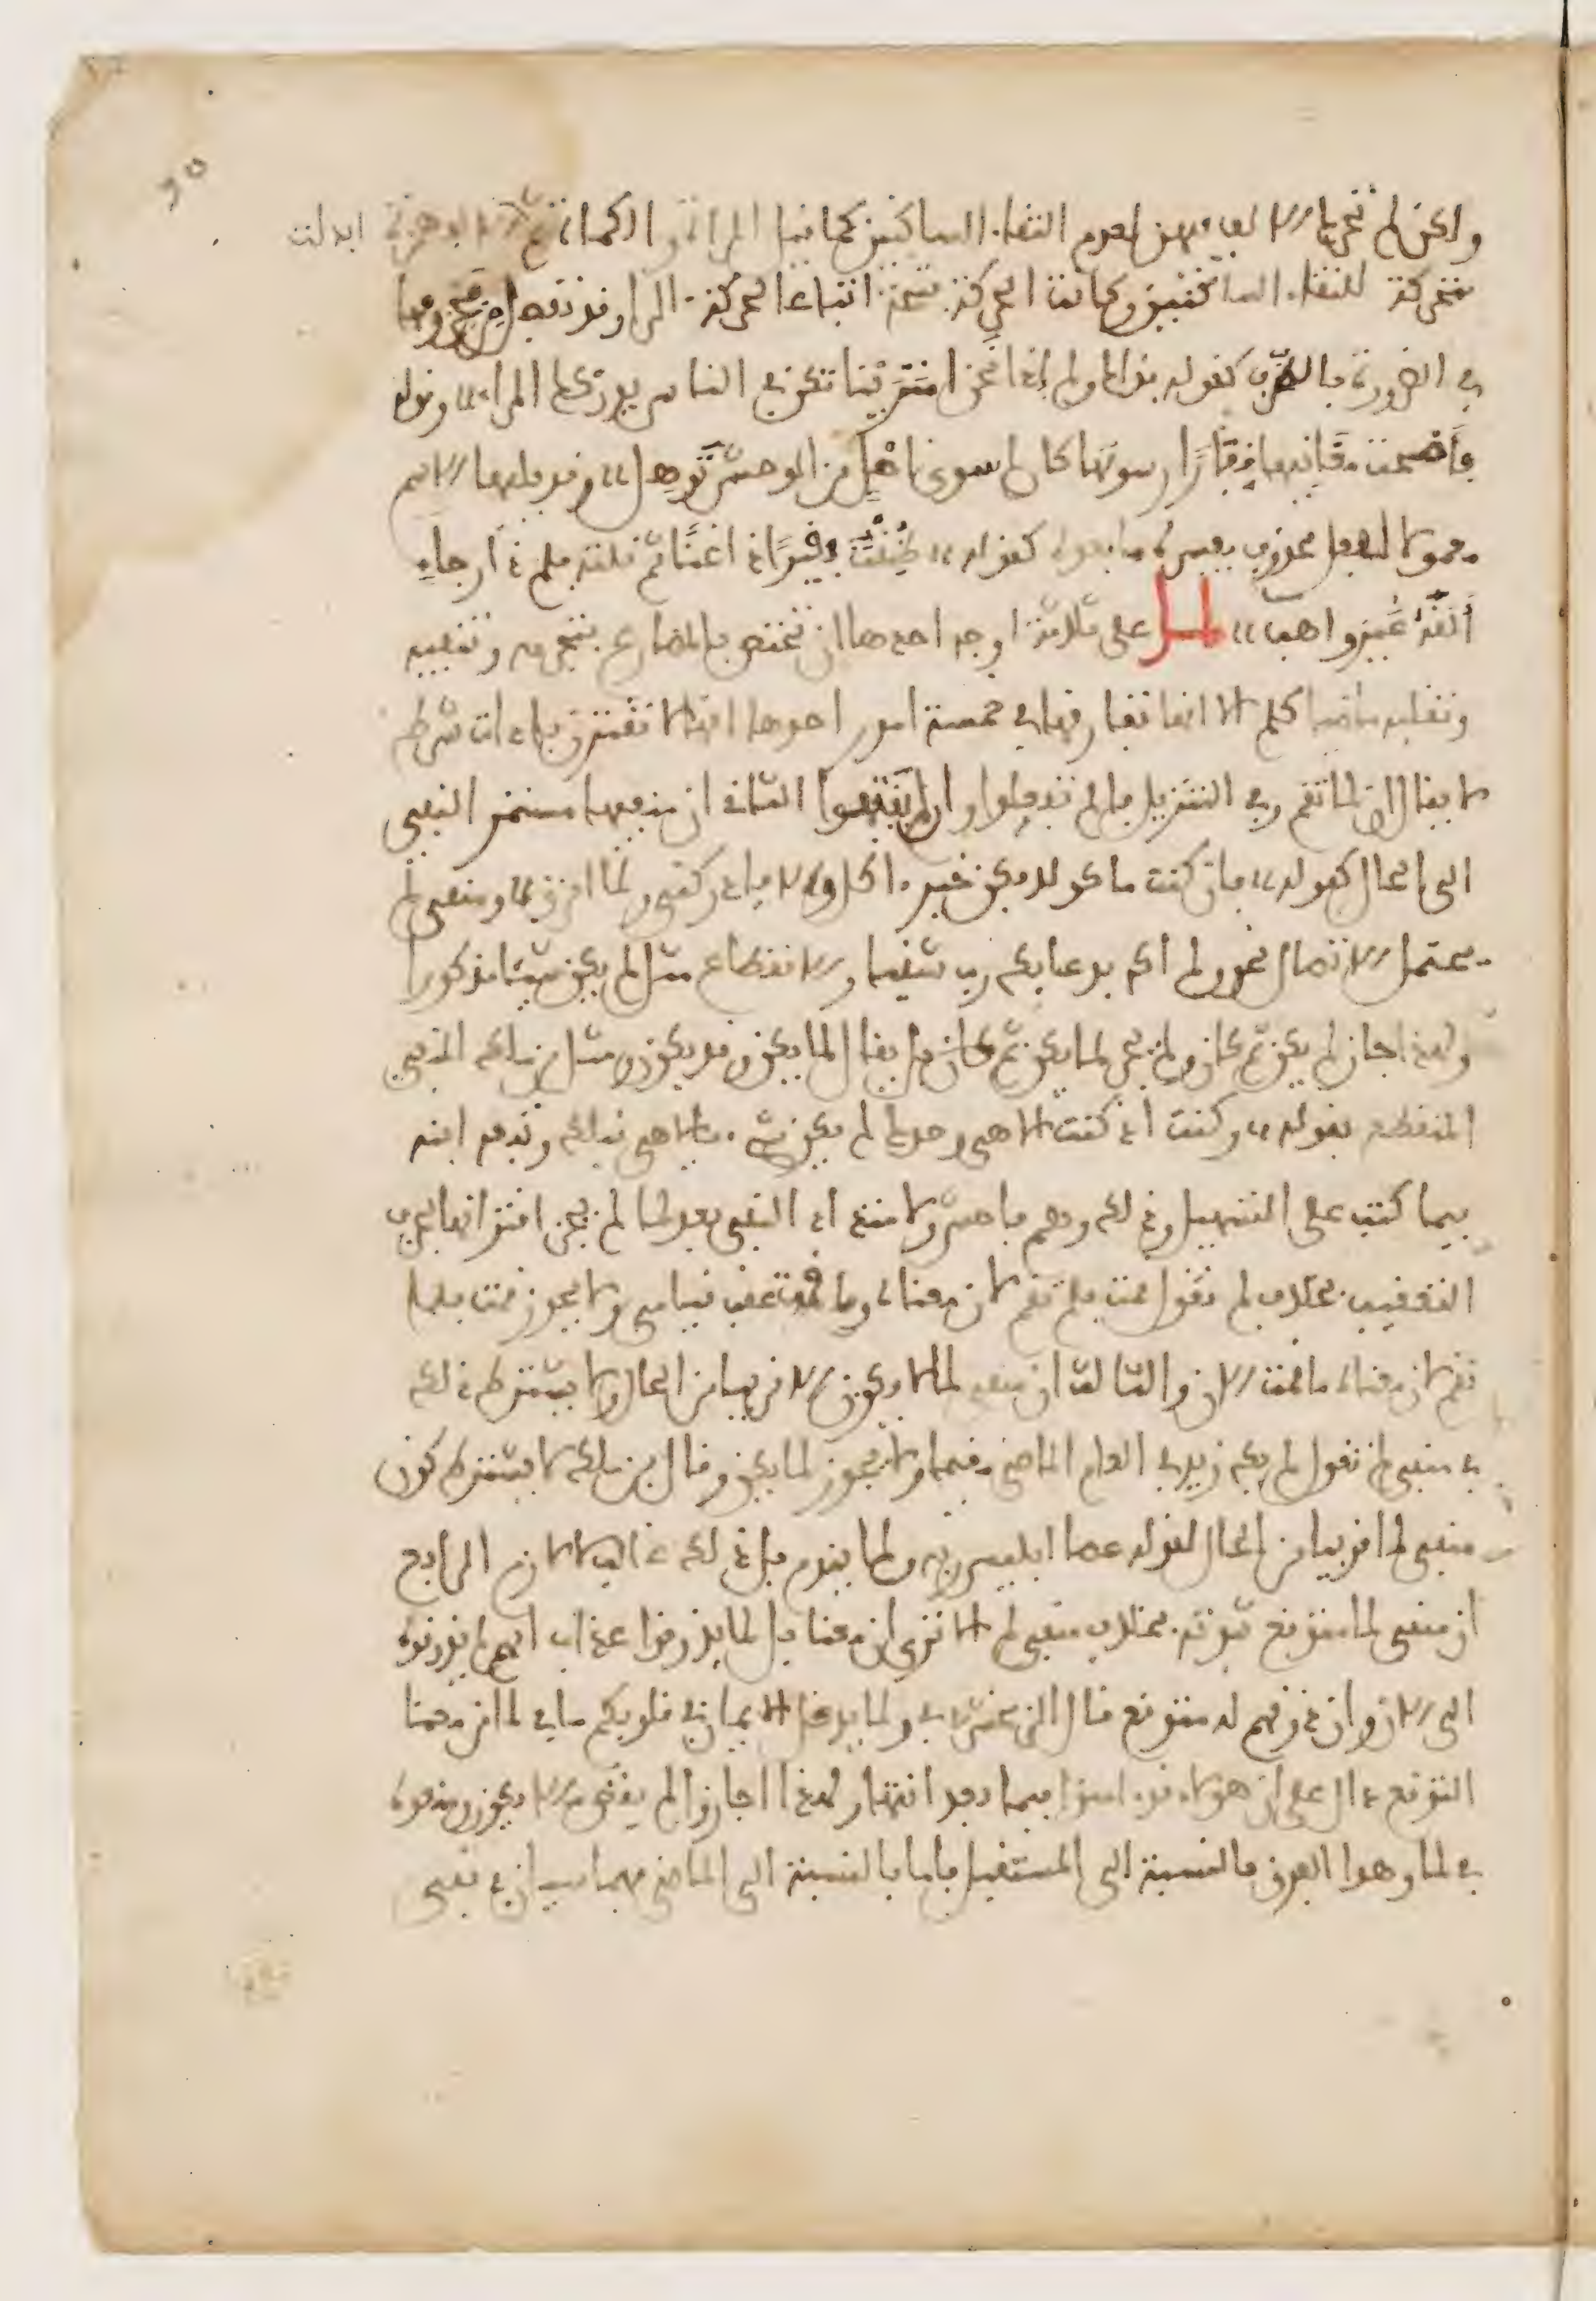 ولكن لم تحركا الالف فيهن لعدم التقاء الساكنين كما فيها المراة والكماة ثم الالف همزة ابدلت
متحركة لالتقاء الساكنين وكانت الحركة فتحة اتباعا لحركة الرا وقد تفصل من مجزومها
في الضرورة بالظرف كقوله فذاك ولم اذا نحن امترينا تكن في الناس يدركك المراء وقوله
فأضحت مغانيها قفارا رسومها كان لم سوى اهل من الوحش توهل وقد يليها الاسم
معمولا لفعل محذوف يفسره ما بعده كقوله ظننت فقيرا ذا غنا ثم نلته فلم ذا رجاء
ألقه غير واهب لما على ثلاثة اوجه احدها ان تختص بالمضارع فتجزمه وتنفيه
وتقلبه ماضيا كلم الا انها تفارقها في خمسة امور احدها انها لا تقترن باداة شرط
لا يقال ان لما تقم وفي التنزيل فان لم تفعلوا وان لم ينتهوا الثاني ان منفيها مستمر النفي
الى الحال كقوله فان كنت ماكولا فكن خير ءاكل والا فادركني ولما امزق ومنفي لم
يحتمل الاتصال نحو ولم اكن بدعايك رب شقيا والانقطاع مثل لم يكن شيئا مذكورا
ولهذا جاز لم يكن ثم كان ولم يجز لما يكن ثم كان بل يقال لما يكن وقد يكون ومثل بن مالك النفي
المنقطع بقوله وكنت اذ كنت الاهي وحدكا لم يكن شيء يا الاهي قبلكا وتبعه ابنه
فيما كتب على التسهيل وذلك وهم فاحش ولامتداد النفي بعد لما لم يجز اقترانها بحرف
التعقيب بخلاف لم تقول قمت فلم تقم لان معناه وما قمت عقب قيامي ولا يجوز قمت فلما
تقم لان معناه ما قمت الان والثالث ان منفي لما لا يكون الا قريبا من الحال ولا يشترط ذلك
في منفي لم تقول لم يكن زيد في العام الماضي مقيما ولا يجوز لما يكن وقال بن مالك لا يشترط كون
منفي لما قريبا من الحال كقوله عصا ابليس ربه ولما يندم بل ذلك غالب لا لازم الرابع
ان منفي لما متوقع ثبوته بخلاف منفي لم الا ترى ان معنا بل لما يذوقوا عذاب انهم لم يذوقوه
الى الان وان ذوقهم له متوقع قال الزمخشري في ولما يدخل الايمان في قلوبكم ما في لما من معنا
التوقع دال على ان هؤلاء قد ءامنوا فيما بعد انتها ولهذا اجازوا لم يقض ما لا يكون ومنعوه
في لما وهذا الفرق بالنسبة الى المستقبل فاما بالنسبة الى الماضي فهما سيان في نفي